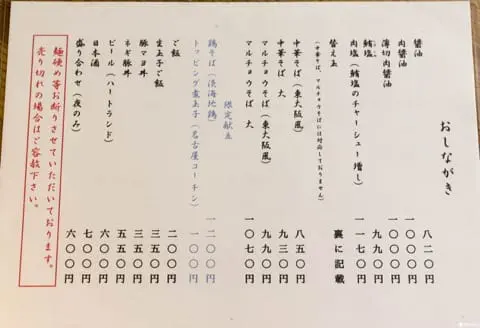 おしながき
醤油 八二〇円
肉醤油 一〇〇〇円
薄切肉醤油 一〇〇〇円
鱈塩 九九〇円
肉塩(鱈塩のチャーシュー増し) 一一七〇円
替え玉 裏に記載
(中華そば、マルチョウそばには対応しておりません)
中華そば(東大阪風) 八五〇円
中華そば 大 九三〇円
マルチョウそば(東大阪風) 九九〇円
マルチョウそば 大 一〇七〇円
限定献立
鶏そば(淡海地鶏) 一二〇〇円
トッピング煮玉子(名古屋コーチン) 一〇〇円
ご飯 二〇〇円
生玉子ご飯 三五〇円
豚マヨ丼 五五〇円
ネギ豚丼 五五〇円
ビール(ハートランド) 六〇〇円
日本酒 七〇〇円
盛り合わせ(夜のみ) 六〇〇円
麺硬め等お断りさせていただいております。
売り切れの場合はご容赦下さい。